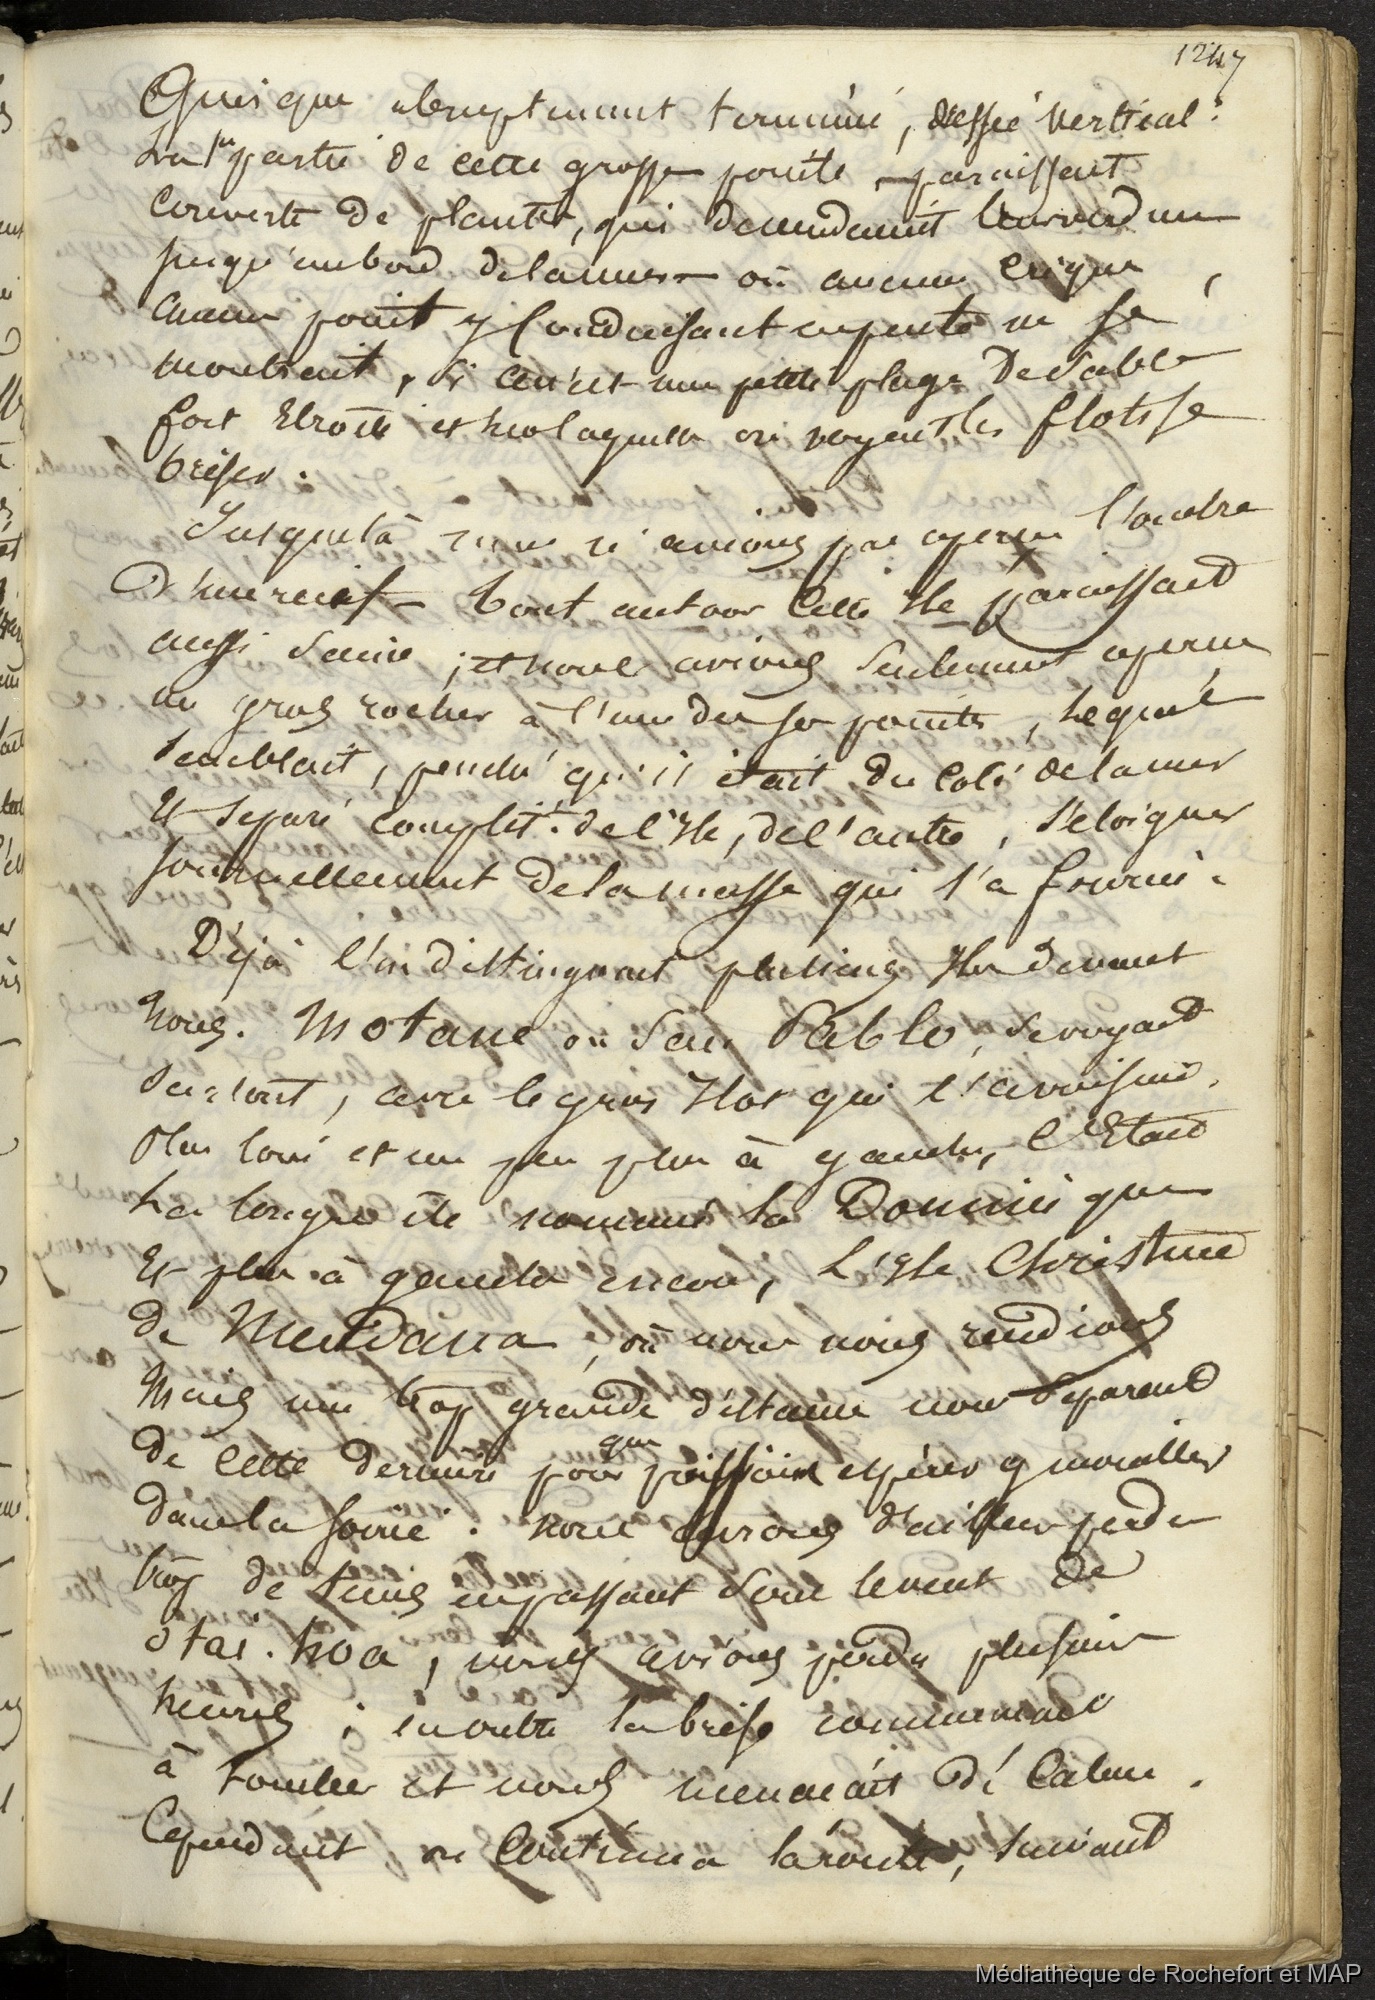 1247
Quoique abruptement terminé, dessée vertical.t
La 1re partie de cette grosse pointe, paraissant
couverte de plantes, qui descendaient leur verdure
jusqu'au bord de la mer où aucune crique,
aucun point y conduisant en pente ne se
montrait, si ce n'est une petite plage de sable
fort étroite et sur laquelle on voyait les flots se
briser.
Jusque là nous n'avions pas aperçu l'ombre
d'un récif tout autour cette île paraissant
aussi saine ; et nous avions seulement aperçu
un gros rocher à l'une de ses pointes, lequel
semblait, penché qu'il était du coté de la mer
et séparé complèt.t de l'île, de l'autre, s'éloigner
journellement de la masse qui l'a fourni.
Déjà l'on distinguait plusieurs îles devant
nous. Motane ou San Pablo, se voyait
surtout, avec le gros îlot qui l'avoisine.
Plus loin et un peu plus à gauche, c'était
la longue île nommée la Dominique
Et plus à gauche encore, L'Île Christine
de Mendana, où nous nous rendions
Mais une trop grande distance nous séparait
de cette dernière pour que puissions espérer y mouiller
dans la soirée. Nous avions d'ailleurs perdu
trop de tems en passant sous le vent de
otai. hoa, nous avions perdu plusieurs
heures ; en outre la brise commençait
à tomber et nous menaçait de calme.
Cependant on continua la route, suivant
Médiathèque de Rochefort et MAP